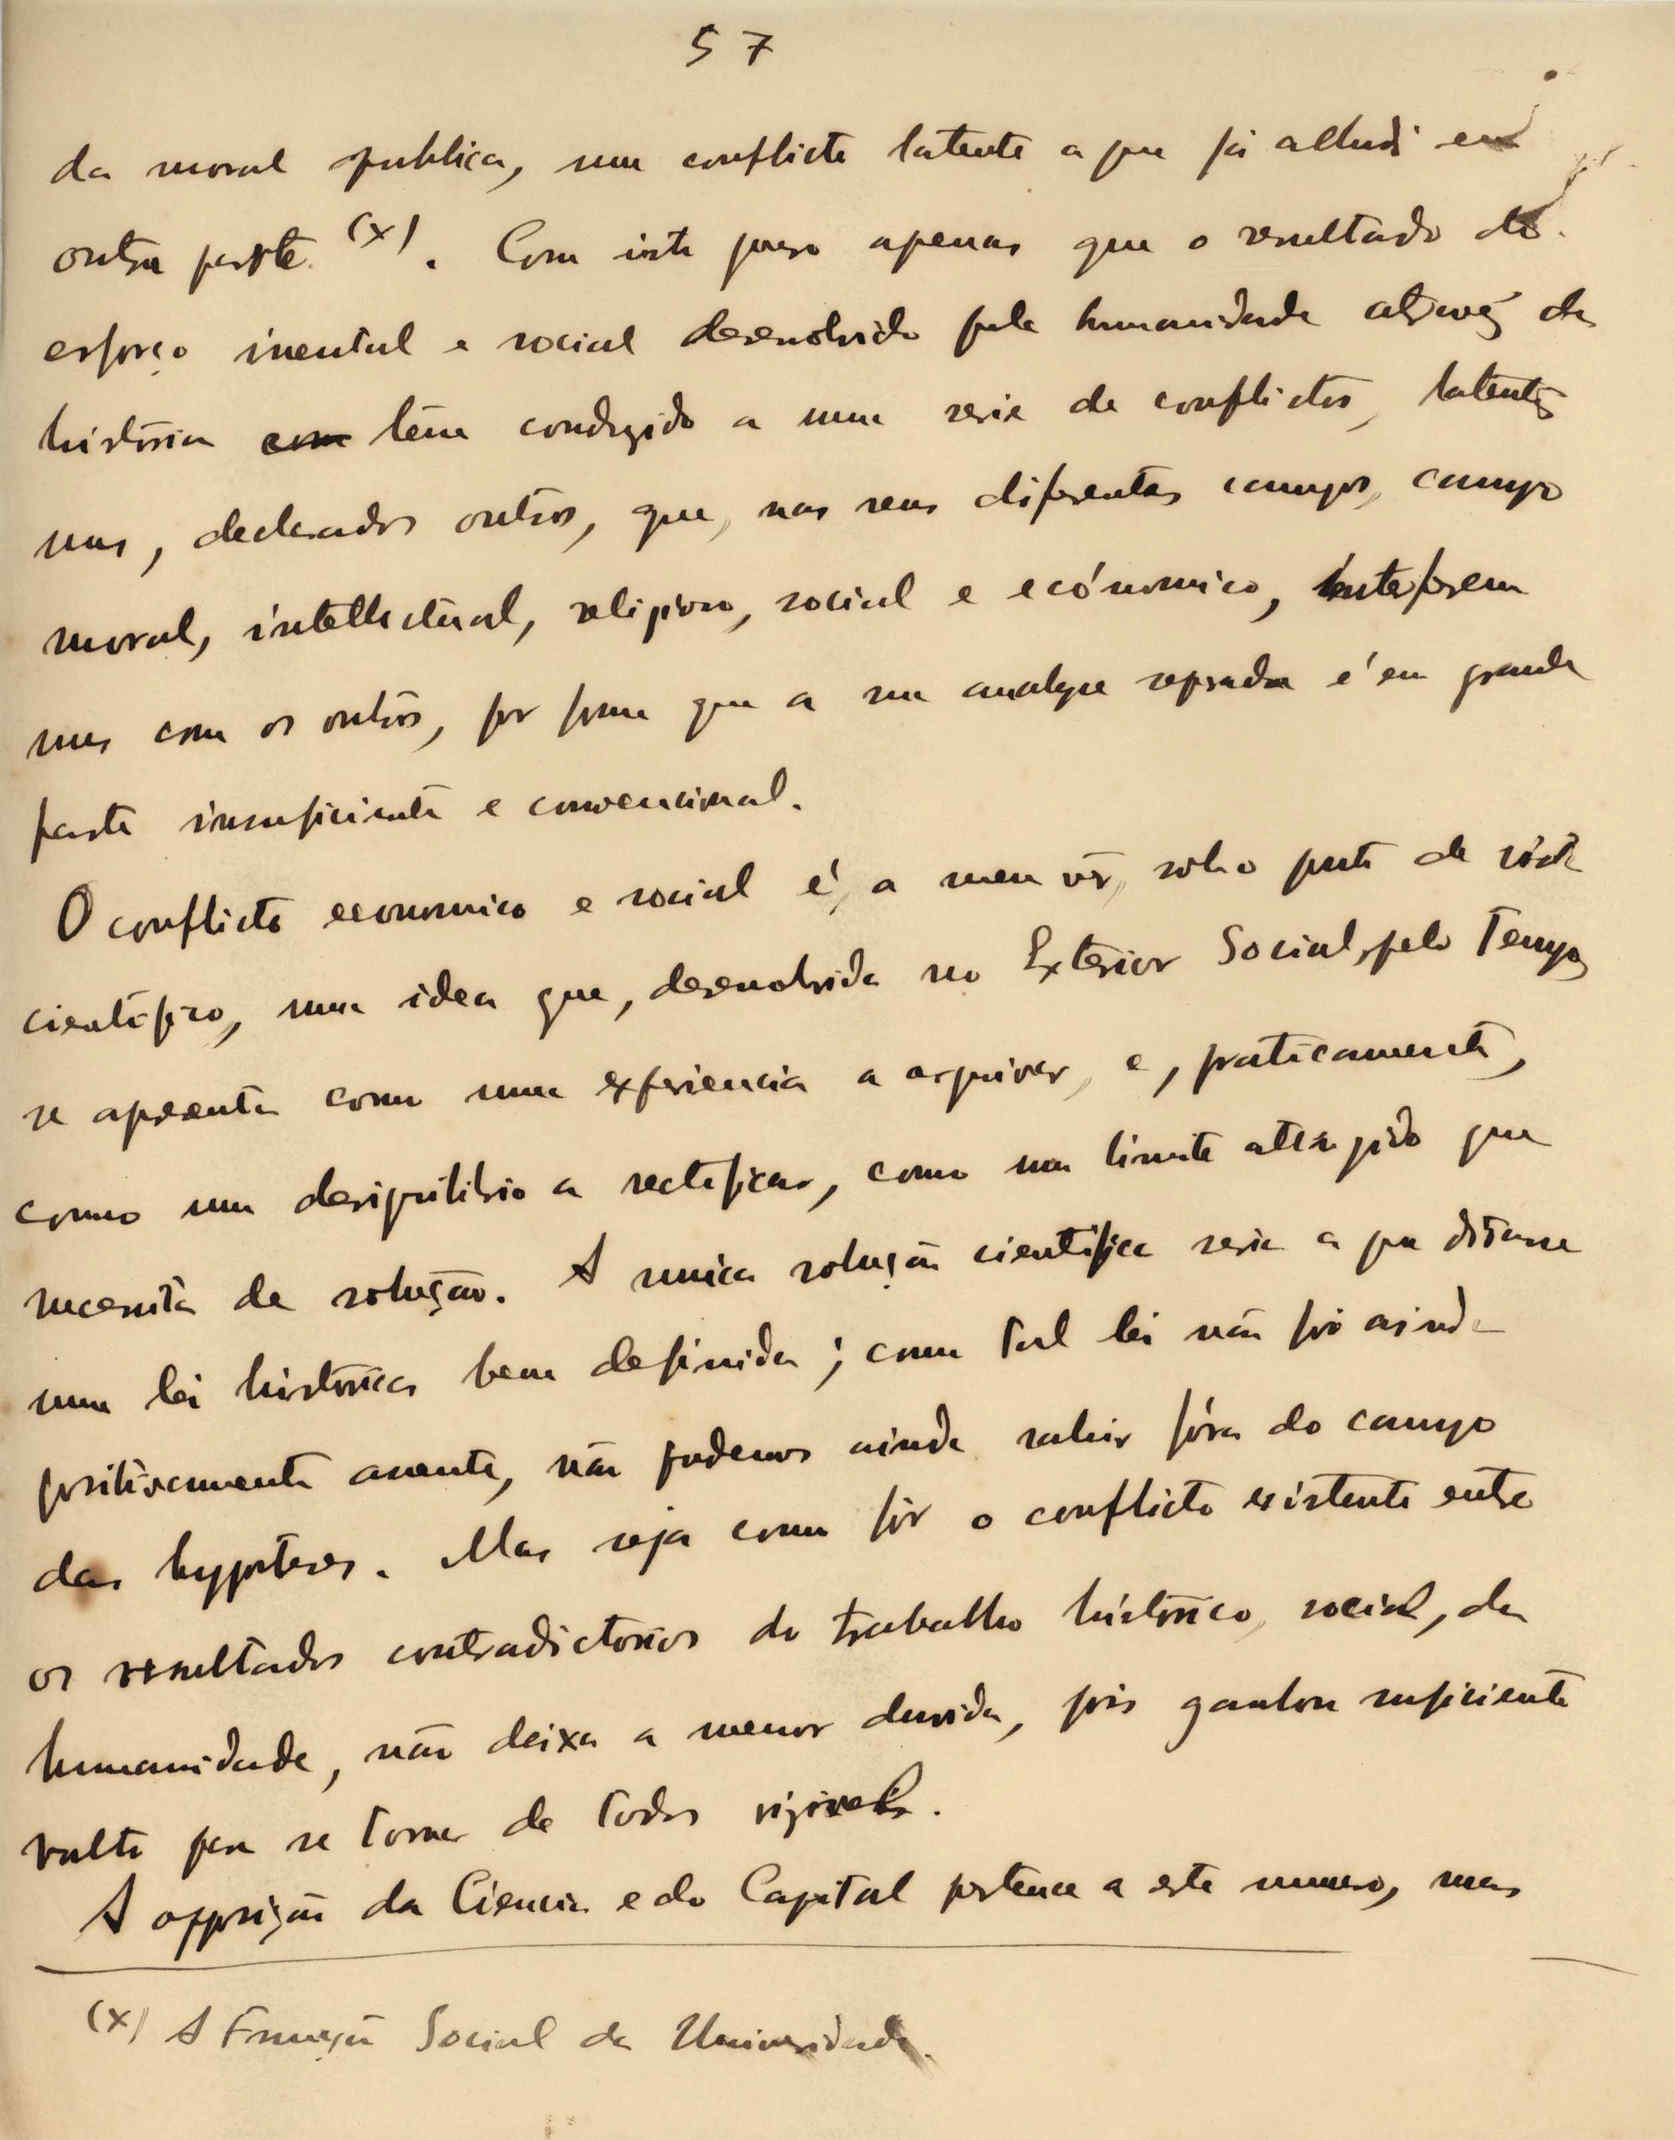 57
da moral publica, um conflicto latente a que já alludi em
outra parte (x). Com isto quero apenas que o resultado do
esforço mental e social desenolvido pela humanidade atravez da
história com têm conduzido a uma serie de conflictos, latentes
uns, declarados outros, que, nos seus diferentes campos, campo
moral, intellectual, religioso, social e ecónomico, interferem
uns com os outros, por forma que a sua analyse separada é em grande
parte insuficiente e convencional.
O conflicto economico e social é, a meu vêr, sob o ponto de vista
cientifico, uma idea que, desenolvida no Exterior Social, pelo Tempo,
se apresenta como uma experiencia a arquivar, e, praticamente,
como um desiquilibrio a rectificar, como um limite attingido que
necessita de solução. A unica solução cientifica seria a que ditasse
uma lei historica bem definida; como tal lei não foi ainda
positivamente assente, não podemos ainda sahir fóra do campo
das hypoteses. Mas seja como fôr o conflicto existente entre
os resultados contradictorios do trabalho histórico, social, da
humanidade, não deixa a menor duvida, pois ganhou suficiente
vulto para se tornar de todos visivel.
A opposição da Ciencia e do Capital pertence a este numero, mas
(x) A Função Social da Universidade.